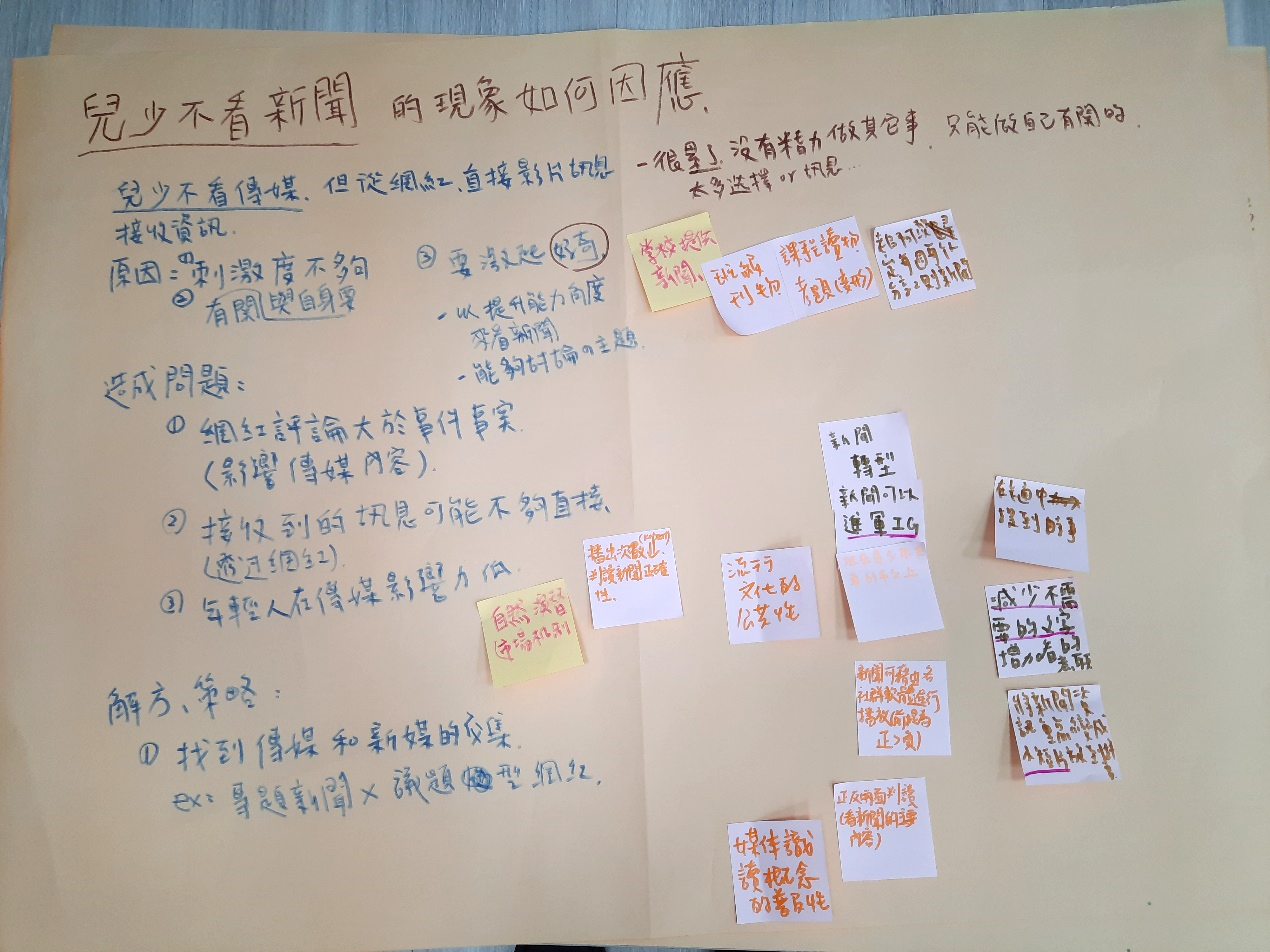 兒少不看新聞 的現象如何因應.
-很累了.沒有精力做其它事.只能做自己有關的.
太多选擇 or 訊息...
兒少不看傳媒.但從網紅、直接影片訊息
接收資訊.
原因:①刺激度不夠
②有關與自身要
③要激起好奇.
-以提升能力角度
來看新聞
-能夠討論の主題.
學校提供
新聞、
班級
刊物
課程讀物
考題(變形)
造成問題:
①網紅評論大於事件事実.
(影響傳媒內容).
②接收到的訊息可能不夠直接.
(透过網紅).
③年輕人在傳媒影響力低.
解方、策略:
①找到傳媒和新媒的交集.
ex:專題新聞×議題型網紅.
自然演習
市場机制
播出次數
判讀新聞正確
性.
流行
文化的
公共性
新聞
轉型
新聞可以
進軍IG
新聞可藉由各
社群軟體進行
播放(前提為
正>負)
正反兩面判讀
(看新聞的主要
內容)
媒体識
讀概念
的普及性
時事
減少不需
要的文字
增加看的
意願